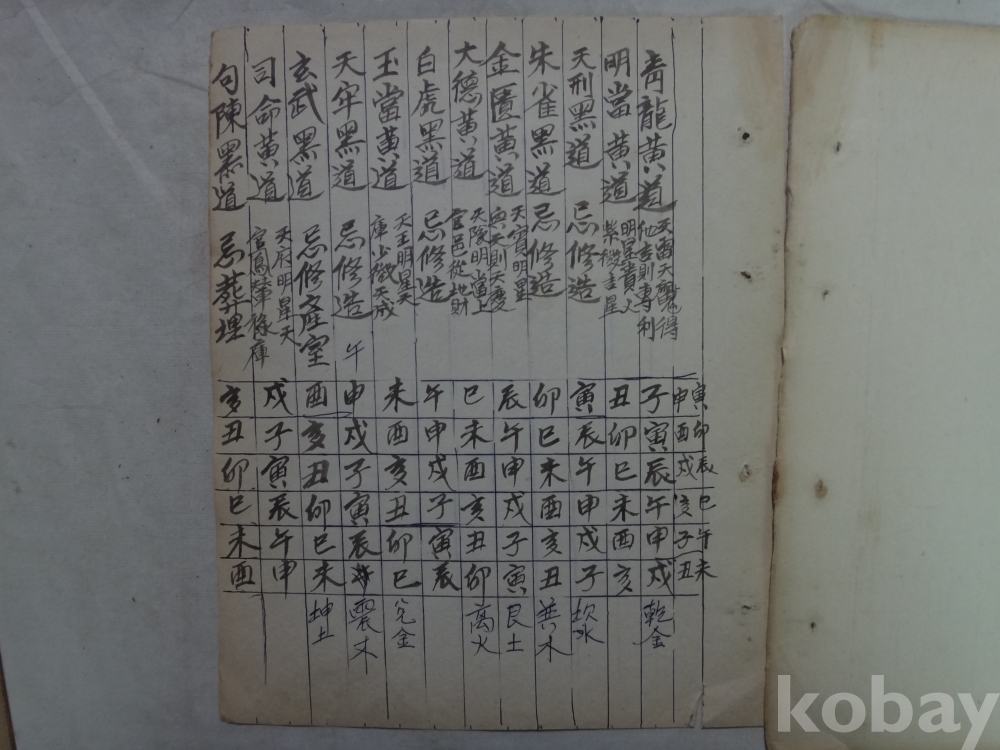 寅卯辰巳午未
申酉戌亥子丑
青龍黃道
天雷天得
他吉則專利
子寅辰午申戌
乾金
明當黃道
明星貴人
紫微吉星
丑卯巳未酉亥
天刑黑道
忌修造
寅辰午申戌子
坎水
朱雀黑道
忌修造
卯巳未酉亥丑
巽木
金匱黃道
天寶明星
與天則天慶
辰午申戌子寅
艮土
大德黃道
天陰明當上
官邑從地財
巳未酉亥丑卯
离火
白虎黑道
忌修造
午申戌子寅辰
玉當黃道
天玉明星天
庫少微天成
未酉亥丑卯巳
兌金
天牢黑道
忌修造
午
申戌子寅辰
震木
玄武黑道
忌修座室
酉亥丑卯巳未
坤土
司命黃道
天府明星天
官鳳輦祿庫
戌子寅辰午申
句陳黑道
忌葬埋
亥丑卯巳未酉
kobay